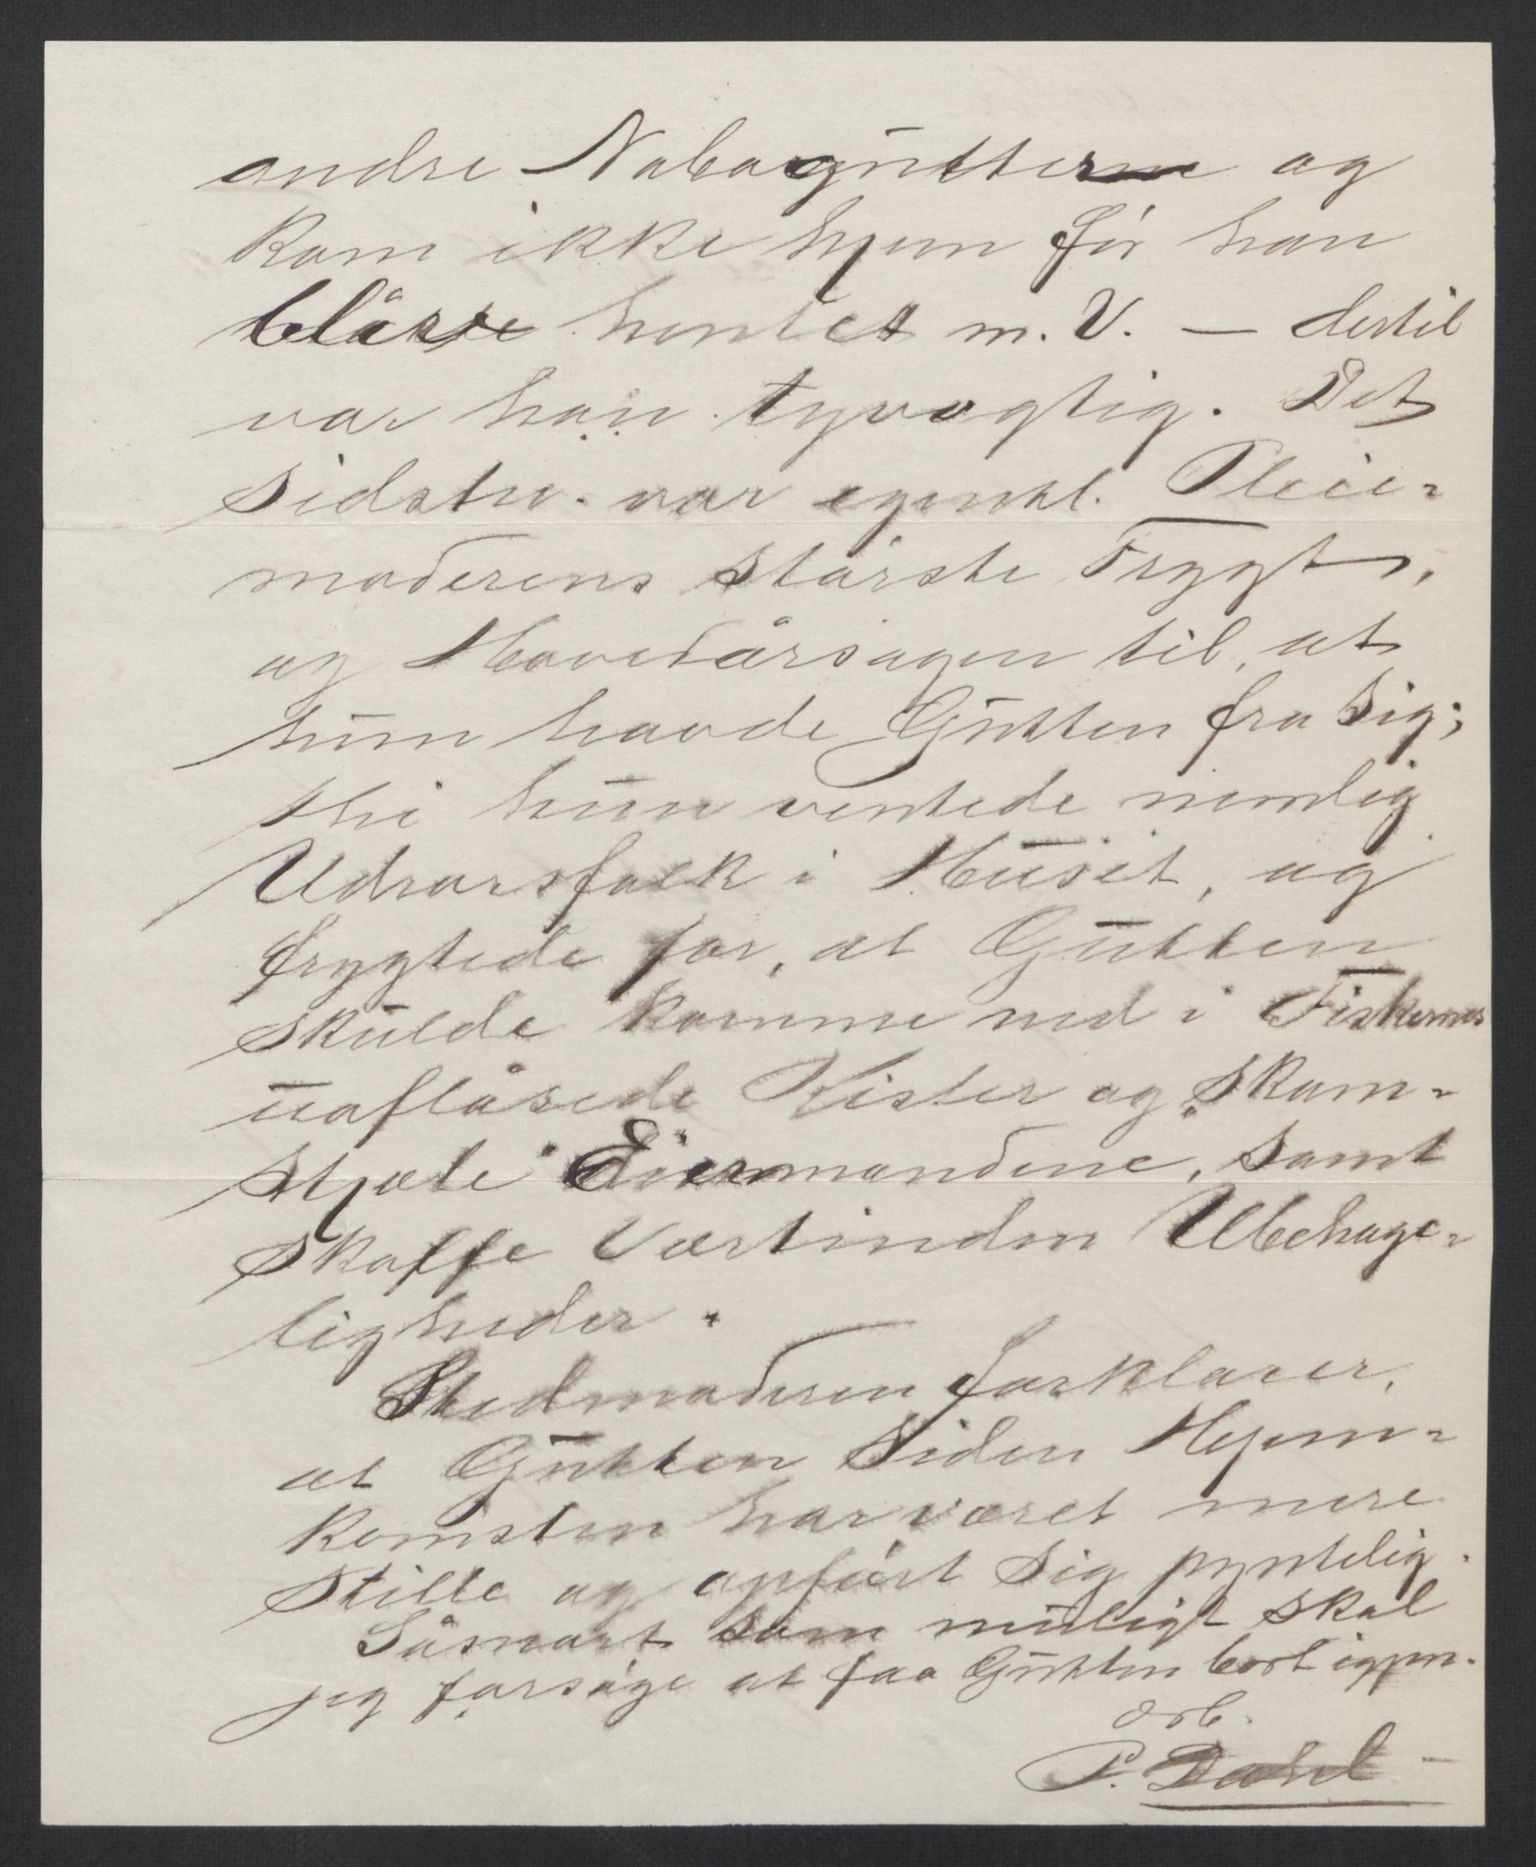 andre Nabogutterne og
kom ikke hjem før han
blåve hentet m. V. — dertil
var han tyvagtig. Det
sidste var egentl. Pleie-
moderens største Frygt,
og Hovedårsagen til, at
hun havde Gutten fra sig;
thi hun ventede nemlig
Udrorsfolk i Huset, og
frygtede for, at Gutten
skulde komme ned i Fiskernes
uaflåsede Kister og kom-
stjæle Eiermændene, samt
skaffe Værtinden Ubehage-
ligheder.
Stedmoderen forklarer,
at Gutten siden Hjem-
komsten har været mere
stille og opført sig pyntelig.
Såsnart som muligt skal
jeg forsøge at faa Gutten bort igjen.
Ærb.
P. Dahl